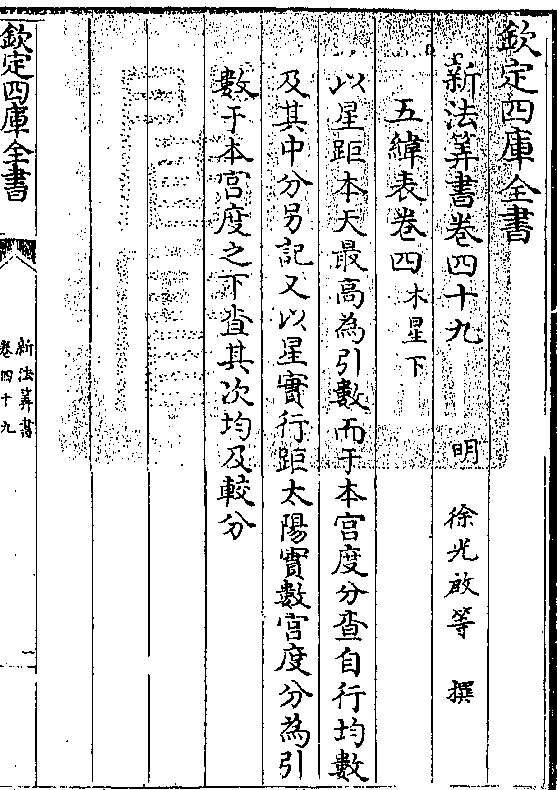 欽定四庫全書
新法筭書卷四十九 明 徐光啟等 撰
五緯表卷四 木星下
以星距本天最高為引數而于本宮度分查自行均數
及其中分另記又以星實行距太陽實數宮度分為引
數于本宮度之下查其次均及較分
欽定四庫全書
新法筭書
卷四十九
一